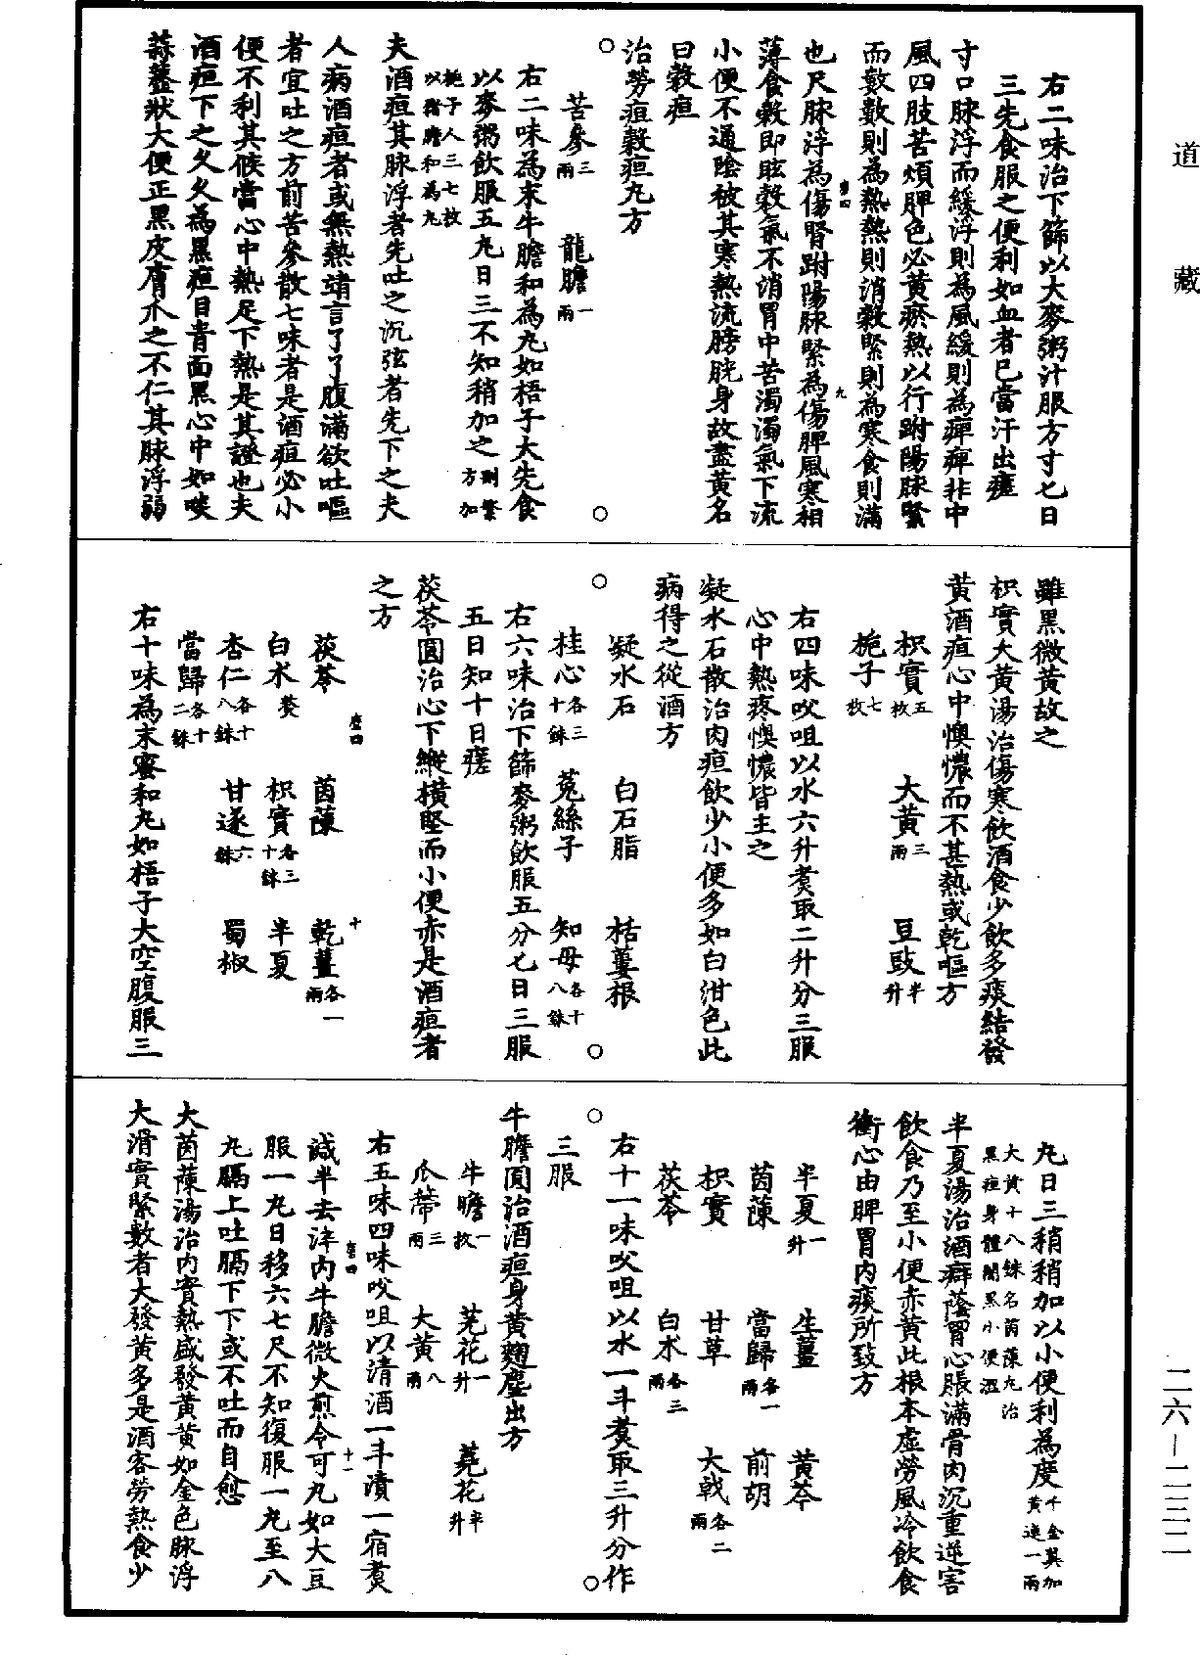 道藏
右二味治下篩以大麥粥汁服方寸匕日
三先食服之便利如血者已當汗出瘥
寸口脉浮而緩浮則為風緩則為痺痺非中
風四肢苦煩脾色必黃瘀熱以行趺陽脉緊
而數數則為熱熱則消穀緊則為寒食則滿
也尺脉浮為傷腎趺陽脉緊為傷脾風寒相
薄食穀即眩穀氣不消胃中苦濁濁氣下流
小便不通陰被其寒熱流膀胱身故盡黃名
曰穀疸
治勞疸穀疸丸方
苦參三兩 龍膽一兩
右二味為末牛膽和為丸如梧子大先食
以麥粥飲服五丸日三不知稍加之刪繁方加
梔子人三七枚以猪膽和為丸
夫酒疸其脉浮者先吐之沉弦者先下之夫
人病酒疸者或無熱靖言了了腹滿欲吐嘔
者宜吐之方前苦參散七味者是酒疸必小
便不利其候當心中熱足下熱是其證也夫
酒疸下之久久為黑疸目青面黑心中如啖
蒜虀狀大便正黑皮膚爪之不仁其脉浮弱
雖黑微黃故之
枳實大黃湯治傷寒飲酒食少飲多痰結發
黃酒疸心中懊憹而不甚熱或乾嘔方
枳實五枚 大黃三兩 豆豉半升
梔子七枚
右四味㕮咀以水六升煮取二升分三服
心中熱疼懊憹皆主之
凝水石散治肉疸飲少小便多如白泔色此
病得之從酒方
凝水石 白石脂 栝蔞根
桂心各三十銖 菟絲子 知母各十八銖
右六味治下篩麥粥飲服五分匕日三服
五日知十日瘥
茯苓圓治心下縱橫堅而小便赤是酒疸者
之方
茯苓 茵蔯 乾薑各一兩
白朮熬 枳實各三十銖 半夏
杏仁各十八銖 甘遂六銖 蜀椒
當歸各十二銖
右十味為末蜜和丸如梧子大空腹服三
丸日三稍稍加以小便利為度千金其加黃連一兩
大黃十八銖名茵蔯丸治黑疸身體闇黑小便澀
半夏湯治酒癖蔭胃心脹滿骨肉沉重逆害
飲食乃至小便赤黃此根本虛勞風冷飲食
衝心由脾胃內痰所致方
半夏一升 生薑 黃芩
茵蔯 當歸各一兩 前胡
枳實 甘草 大戟各二兩
茯苓 白朮各三兩
右十一味㕮咀以水一斗煮取三升分作
三服
牛膽圓治酒疸身黃麴塵出方
牛膽一枚 芫花一升 蕘花半升
瓜蔕三兩 大黃八兩
右五味四味㕮咀以清酒一斗漬一宿煮
減半去滓內牛膽微火煎令可丸如大豆
服一丸日移六七尺不知復服一丸至八
丸膈上吐膈下下或不吐而自愈
大茵蔯湯治內實熱盛發黃黃如金色脉浮
大滑實緊數者大發黃多是酒客勞熱食少
二六—二三二